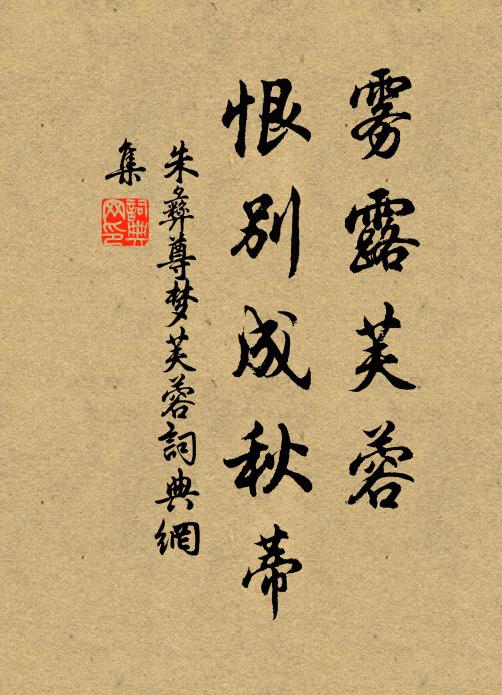 雾露芙蓉
恨别成秋蒂
朱彝尊梦芙蓉詞典網
集
詞典網印